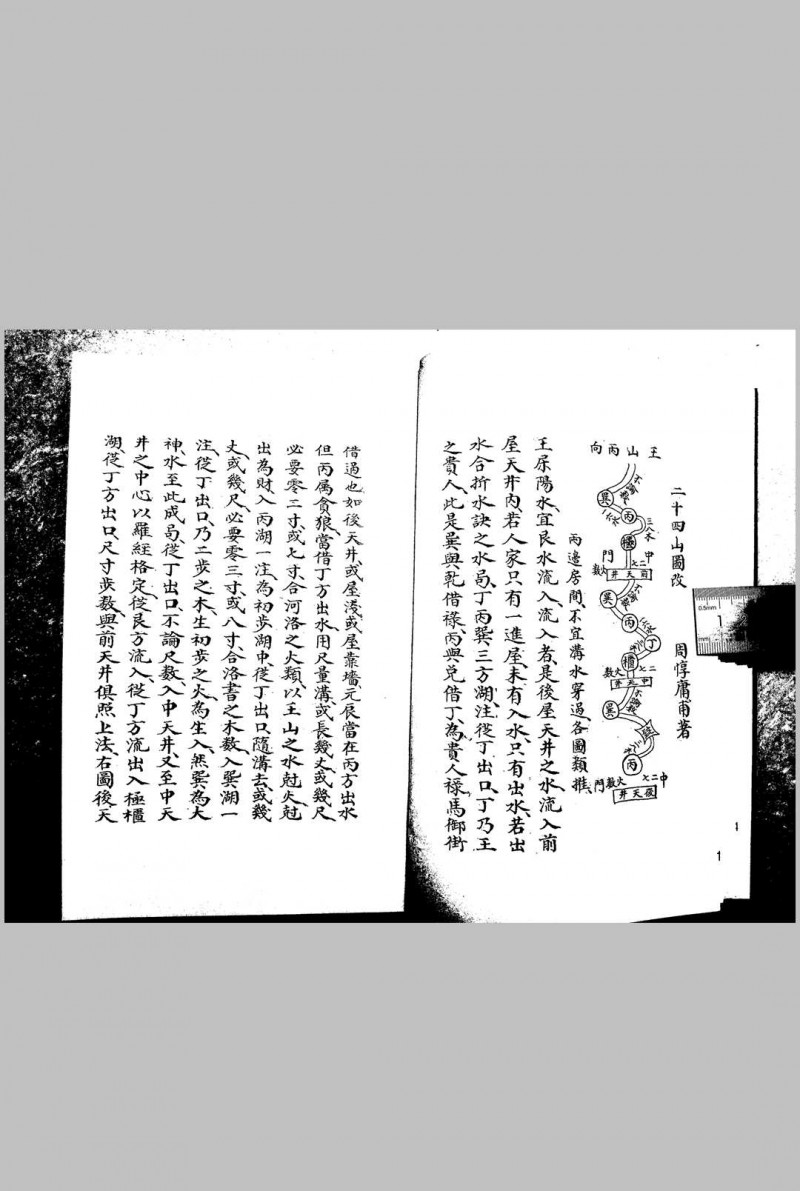 二十四山圖改
周惇庸甫著
壬山丙向
巽
丙
極
三八木
中
門
七二
火數
前天井
巽
丙
丁
櫃
七二
火數
中天井
巽
丙
中
七二
火數
門
後天井
兩邊房間、不宜溝水穿過、各圖類推、
壬屬陽水、宜艮水流入、流入者、是後屋天井之水、流入前
屋天井內、若人家只有一進屋、未有入水、只有出水、若出
水合折水訣之水局、丁丙巽三方湖、注從丁出口、丁乃壬
之貴人、此是巽與乾借祿、丙與兌借丁、為貴人祿馬御街
借過也、如後天井、或屋淺、或屋靠墻、元辰當在丙方出水
但丙屬貪狼、當借丁方出水、用尺量溝、或長幾丈、或幾尺
必要零二寸、或七寸、合河洛之火類、以壬山之水尅火、尅
出為財、入丙湖一注、為初步湖中、從丁出口、隨溝去、或幾
丈、或幾尺、必要零三寸、或八寸、合洛書之木數、入巽湖一
注、從丁出口、乃二步之木、生初步之火、為生入、然巽為大
神、水至此成局、從丁出口、不論尺數、入中天井、又至中天
井之中心、以羅經格定、從艮方流入、從丁方流出、入極櫃
湖、從丁方出口、尺寸步數、與前天井俱照上法、右圖後天
0.5mm
1
mm
1
1